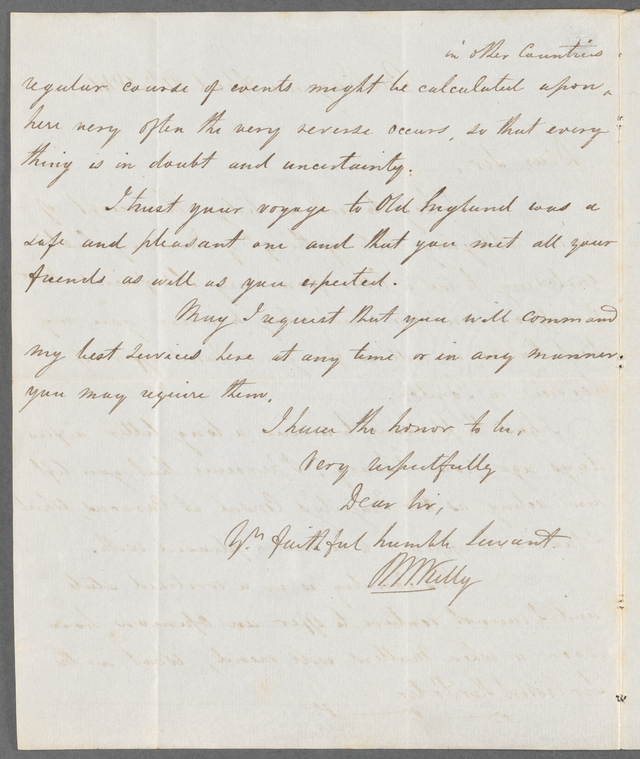 in other Countries
regular course of events might be calculated upon,
here very often the very reverse occurs, so that every
thing is in doubt and uncertainty.
I trust your voyage to Old England was a
safe and pleasant one and that you met all your
friends as well as you expected.
May I request that you will command
my best services here at any time or in any manner
you may require them.
I have the honor to be,
Very respectfully
Dear Sir,
Yr. faithful humble Servant.
Kelly